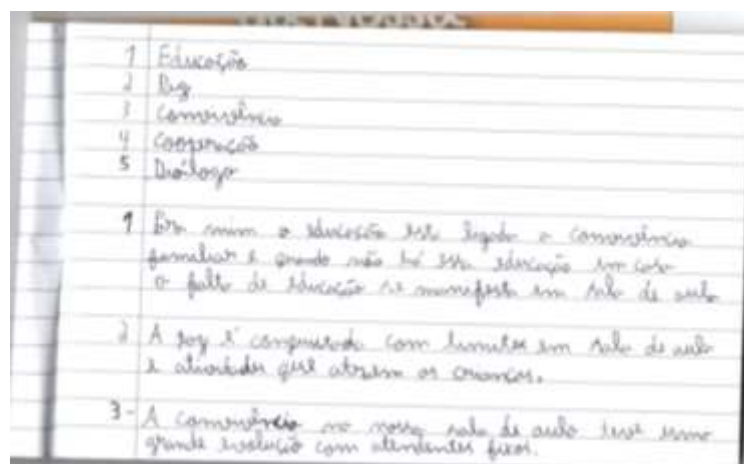 1 Educação
2 Paz
3 Convivência
4 Cooperação
5 Diálogo
1 Pra mim a educação esta ligada a convivência
familiar e quando não há essa educação em casa
a falta de educação se manifesta em sala de aula
2 A paz é conquistada com limites em sala de aula
e atividades que atraem as crianças.
3- A convivência na nossa sala de aula teve uma
grande evolução com atendentes fixos.